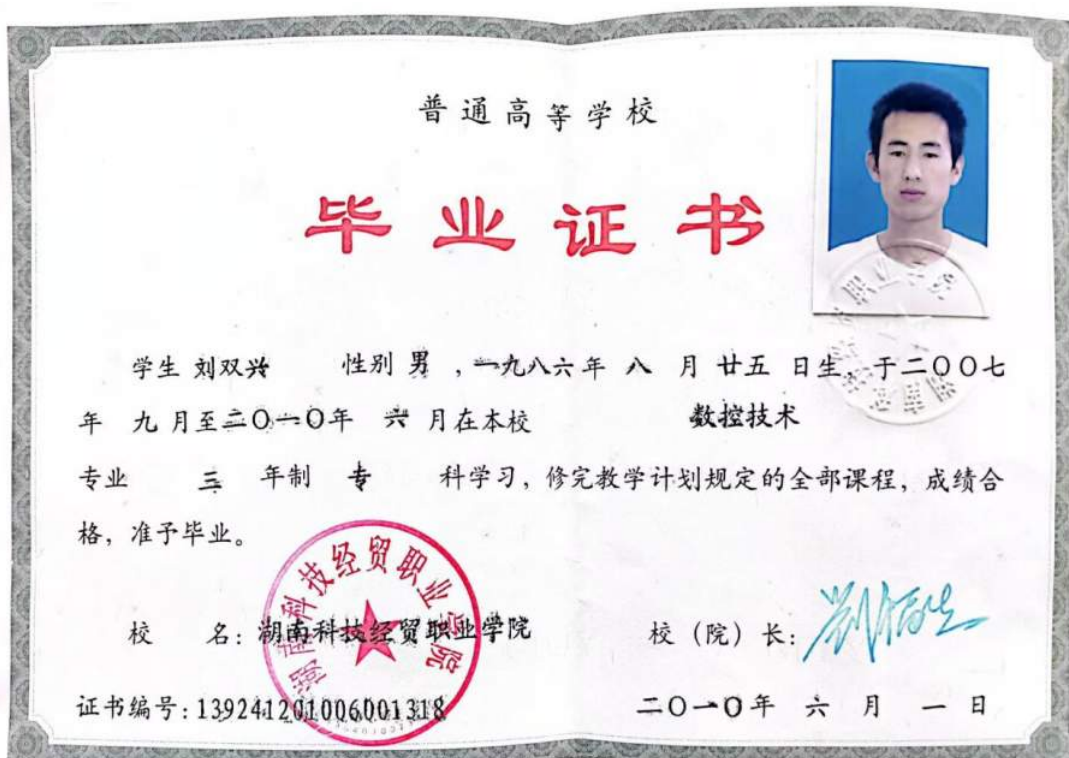 普通高等学校
毕业证书
学生 刘双兴 性别 男 ，一九八六年 八 月 廿五 日生，于二〇〇七
年 九 月至二〇一〇年 六 月在本校 数控技术
专业 三 年制 专 科学习，修完教学计划规定的全部课程，成绩合
格，准予毕业。
湖南科技经贸职业学院
校 名：湖南科技经贸职业学院 校（院）长：
证书编号：139241201006001318 二〇一〇年 六 月 一 日